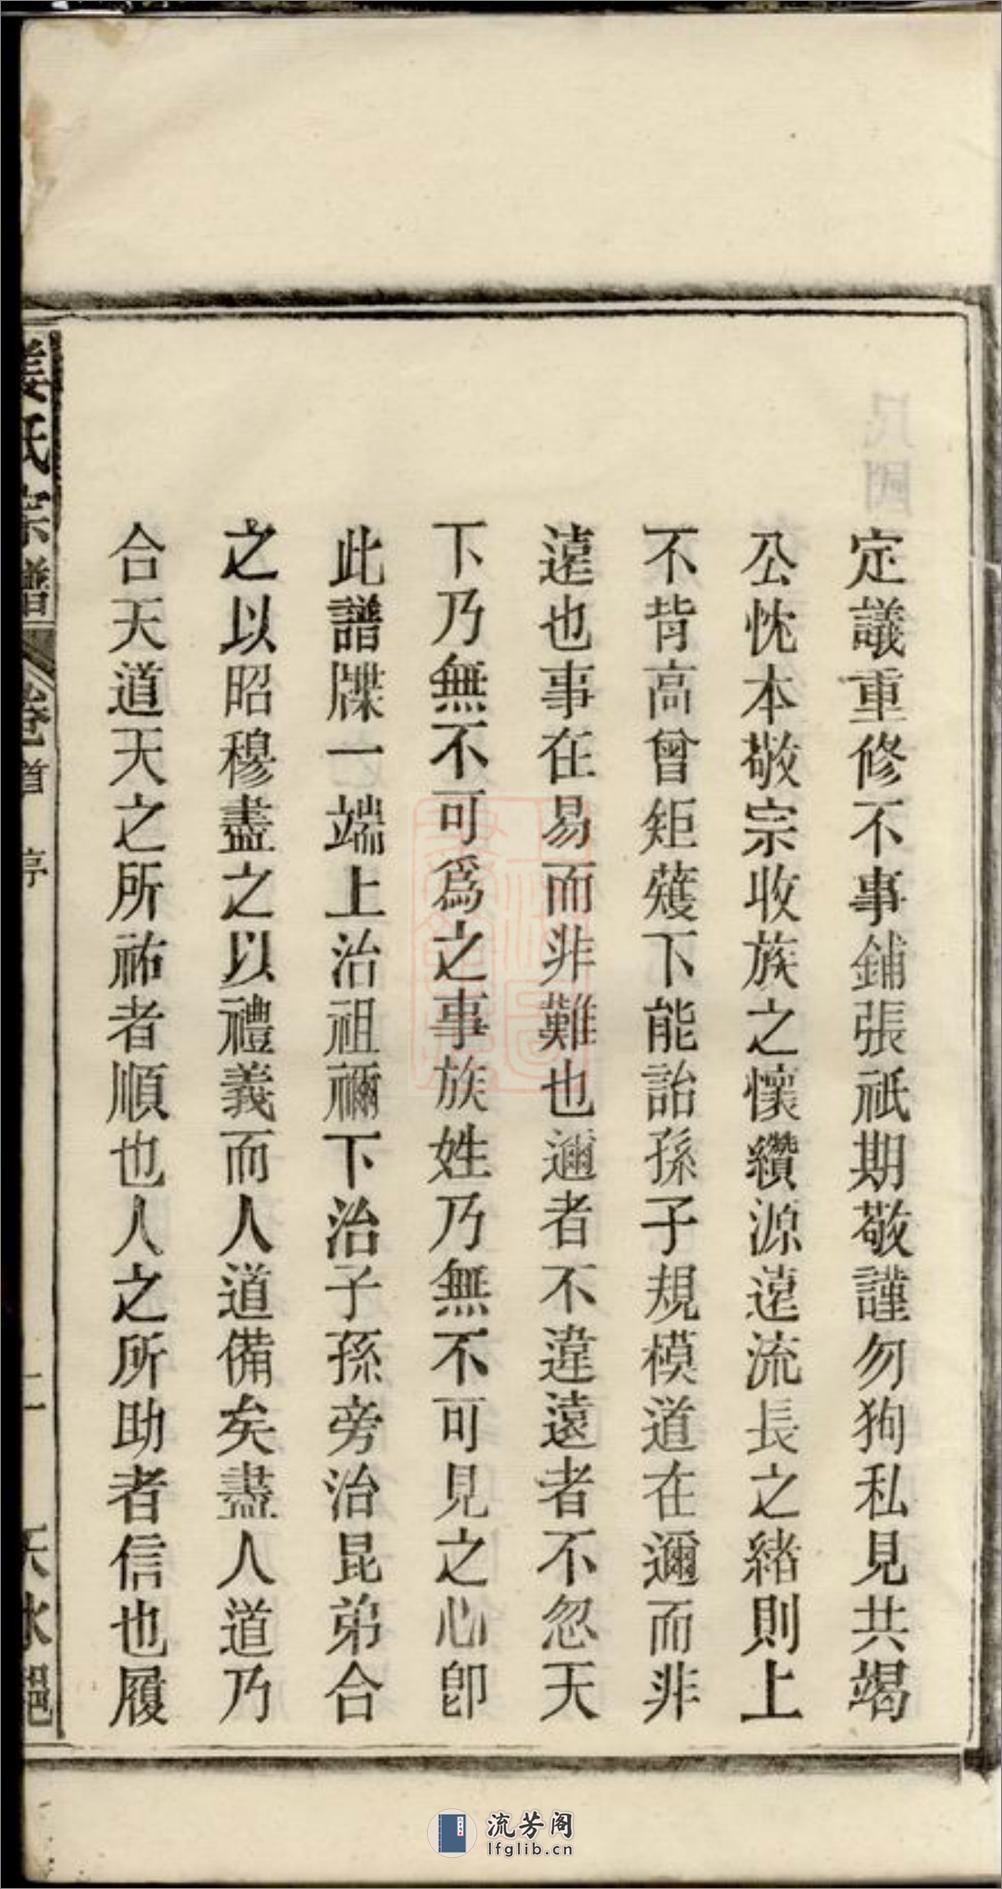 定議重修不事鋪張祇期敬謹勿狥私見共竭
公忱本敬宗收族之懷纘源遠流長之緒則上
不背高曾矩薙下能詒孫子規模道在邇而非
遠也事在易而非難也邇者不違遠者不忽天
下乃無不可爲之事族姓乃無不可見之心卽
此譜牒一端上治祖禰下治子孫旁治昆弟合
之以昭穆盡之以禮義而人道備矣盡人道乃
合天道天之所祐者順也人之所助者信也履
姜氏宗譜 卷首 序 二
流芳阁
lfglib.cn